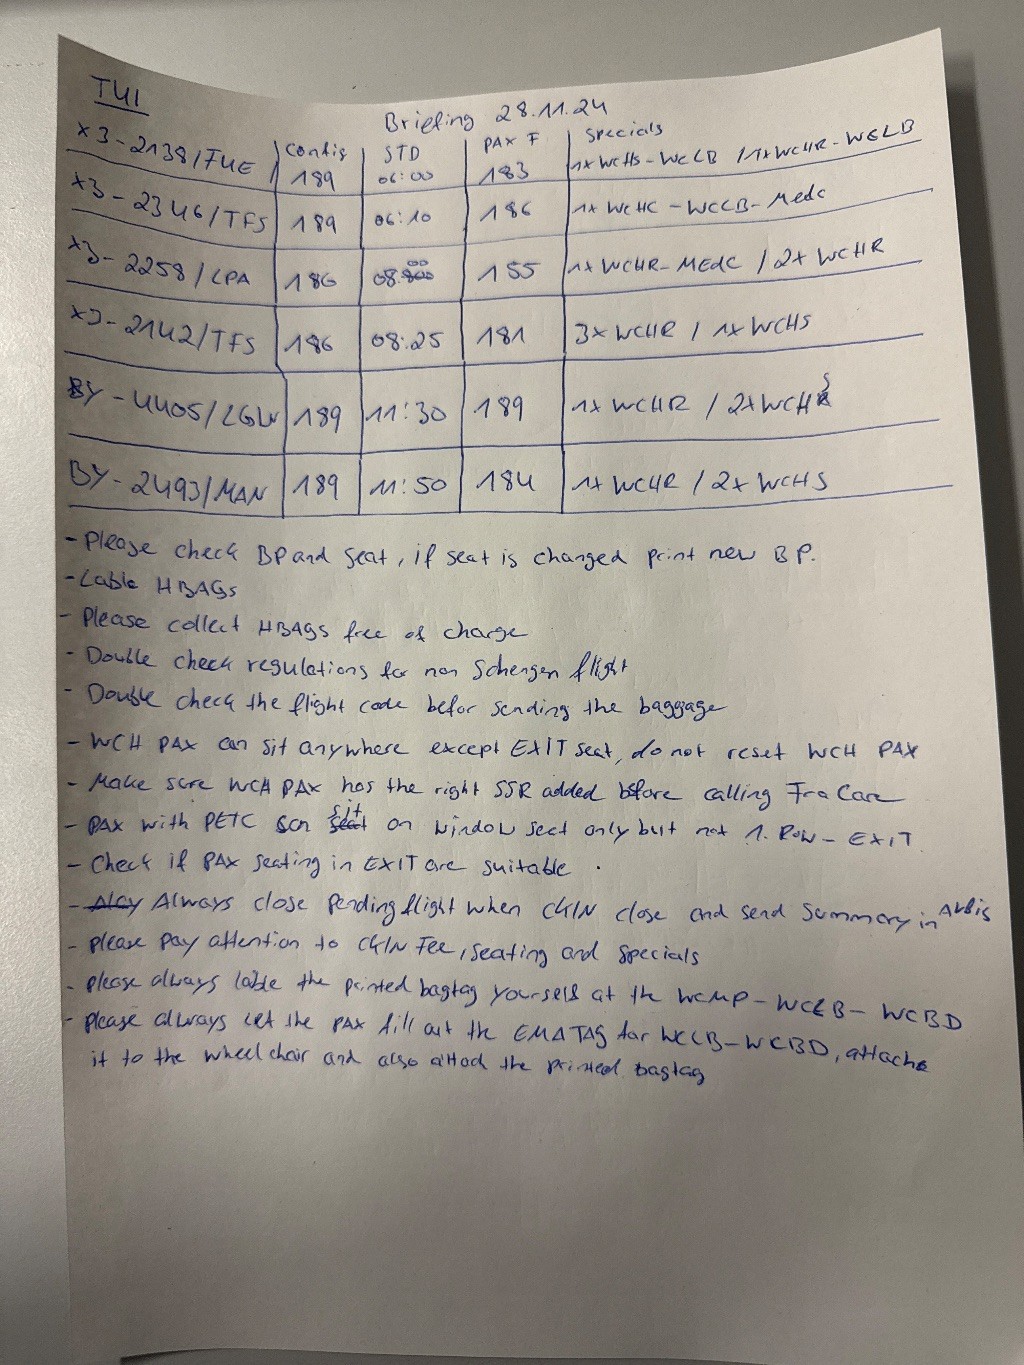 TUI
Briefing 28.11.24
Config STD PAX F Specials
X3-2138/FUE 189 06:00 183 1x WCHS-WCLB / 1x WCHR-WCLB
X3-2346/TFS 189 06:10 186 1x WCHC-WCLB-Medc
X3-2258/LPA 186 08:00 155 1x WCHR-MEDC / 2x WCHR
X3-2142/TFS 186 08:25 181 3x WCHR / 1x WCHS
BY-4405/LGW 189 11:30 189 1x WCHR / 2x WCHS
BY-2493/MAN 189 11:50 184 1x WCHR / 2x WCHS
- Please check BP and Seat, if seat is changed print new BP.
- Lable HBAGs
- Please collect HBAGs free of charge
- Double check regulations for non Schengen flight
- Double check the flight code befor sending the baggage
- WCH PAX can sit anywhere except EXIT seat, do not reset WCH PAX
- Make sure WCH PAX has the right SSR added before calling FraCare
- PAX with PETC can sit on window seat only but not 1. Row - EXIT
- Check if PAX seating in EXIT are suitable.
- Always close pending flight when CKIN close and send Summary in
- please pay attention to CKIN Fee, seating and specials
- please always lable the printed bagtag yourself at the WCMP-WCLB-WCBD
- please always let the PAX fill out the EMA TAG for WCLB-WCBD, attache
it to the wheelchair and also attach the printed bagtag